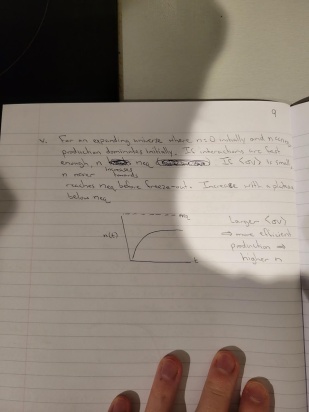 9
v. For an expanding universe where n=0 initially and n <<neq
production dominates initially. If interactions are fast
enough, n increases towards neq. If <σv> is small,
n never
reaches neq before freezeout. Increase with a plateau
below neq
neq
n(t)
t
Larger <σv>
⇒ more efficient
production ⇒
higher n